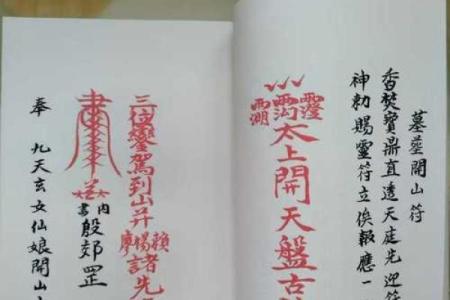 墓塋開山符
香焚寶鼎直透天庭先迎符
神勅賜靈符立俟報應一
太上開天盤古
三位鑾駕到山并廖楊賴諸先
內書殷郊罡
奉 九天玄女仙娘開山